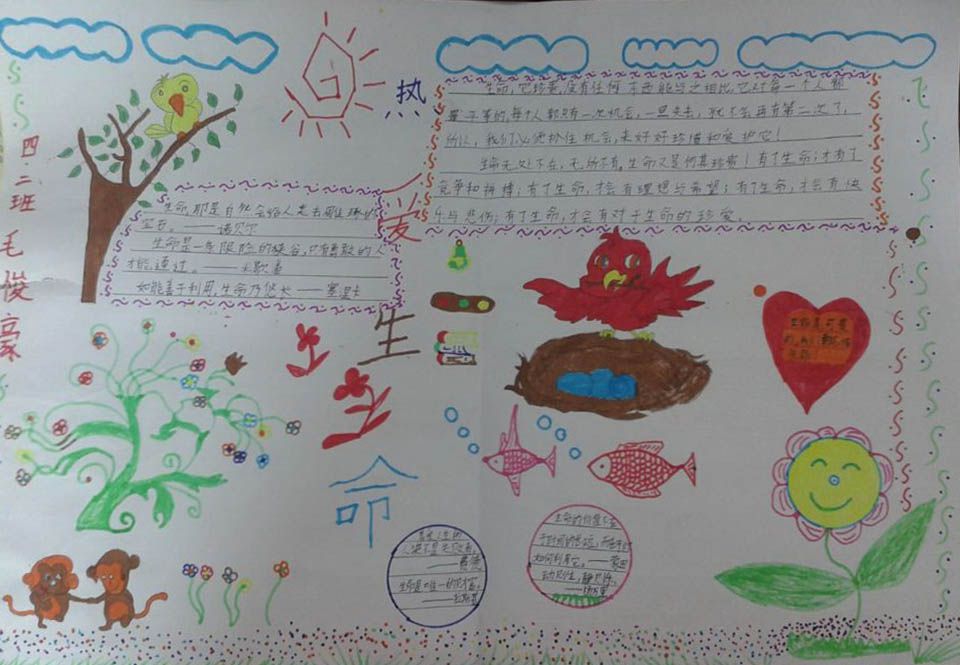 四二班
毛俊豪
执
爱
生
命
生命,它珍贵,没有任何东西能与之相比,它对每一个人都
是平等的,每个人都只有一次机会,一旦失去,就不会再有第二次了,
所以,我们必须抓住机会,来好好珍惜和爱护它!
生命无处不在,无所不有,生命又是何其珍贵!有了生命;才有了
竞争和拼搏;有了生命,才会有理想与希望;有了生命,才会有快
乐与悲伤;有了生命,才会有对于生命的珍爱。
生命,那是自然会给人类去雕琢的
宝石。——诺贝尔
生命是一条险的峡谷,只有勇敢的人
才能通过。——米歇潘
如能善于利用,生命乃悠长——塞涅卡
生命的价值不在
于时间的长短,而在于
如何利用它。——蒙田